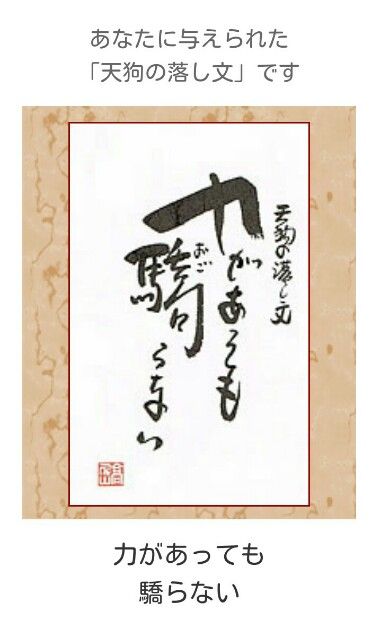 あなたに与えられた
「天狗の落し文」です
天狗の落し文
力があっても
驕らない
おご
高尾山
力があっても
驕らない